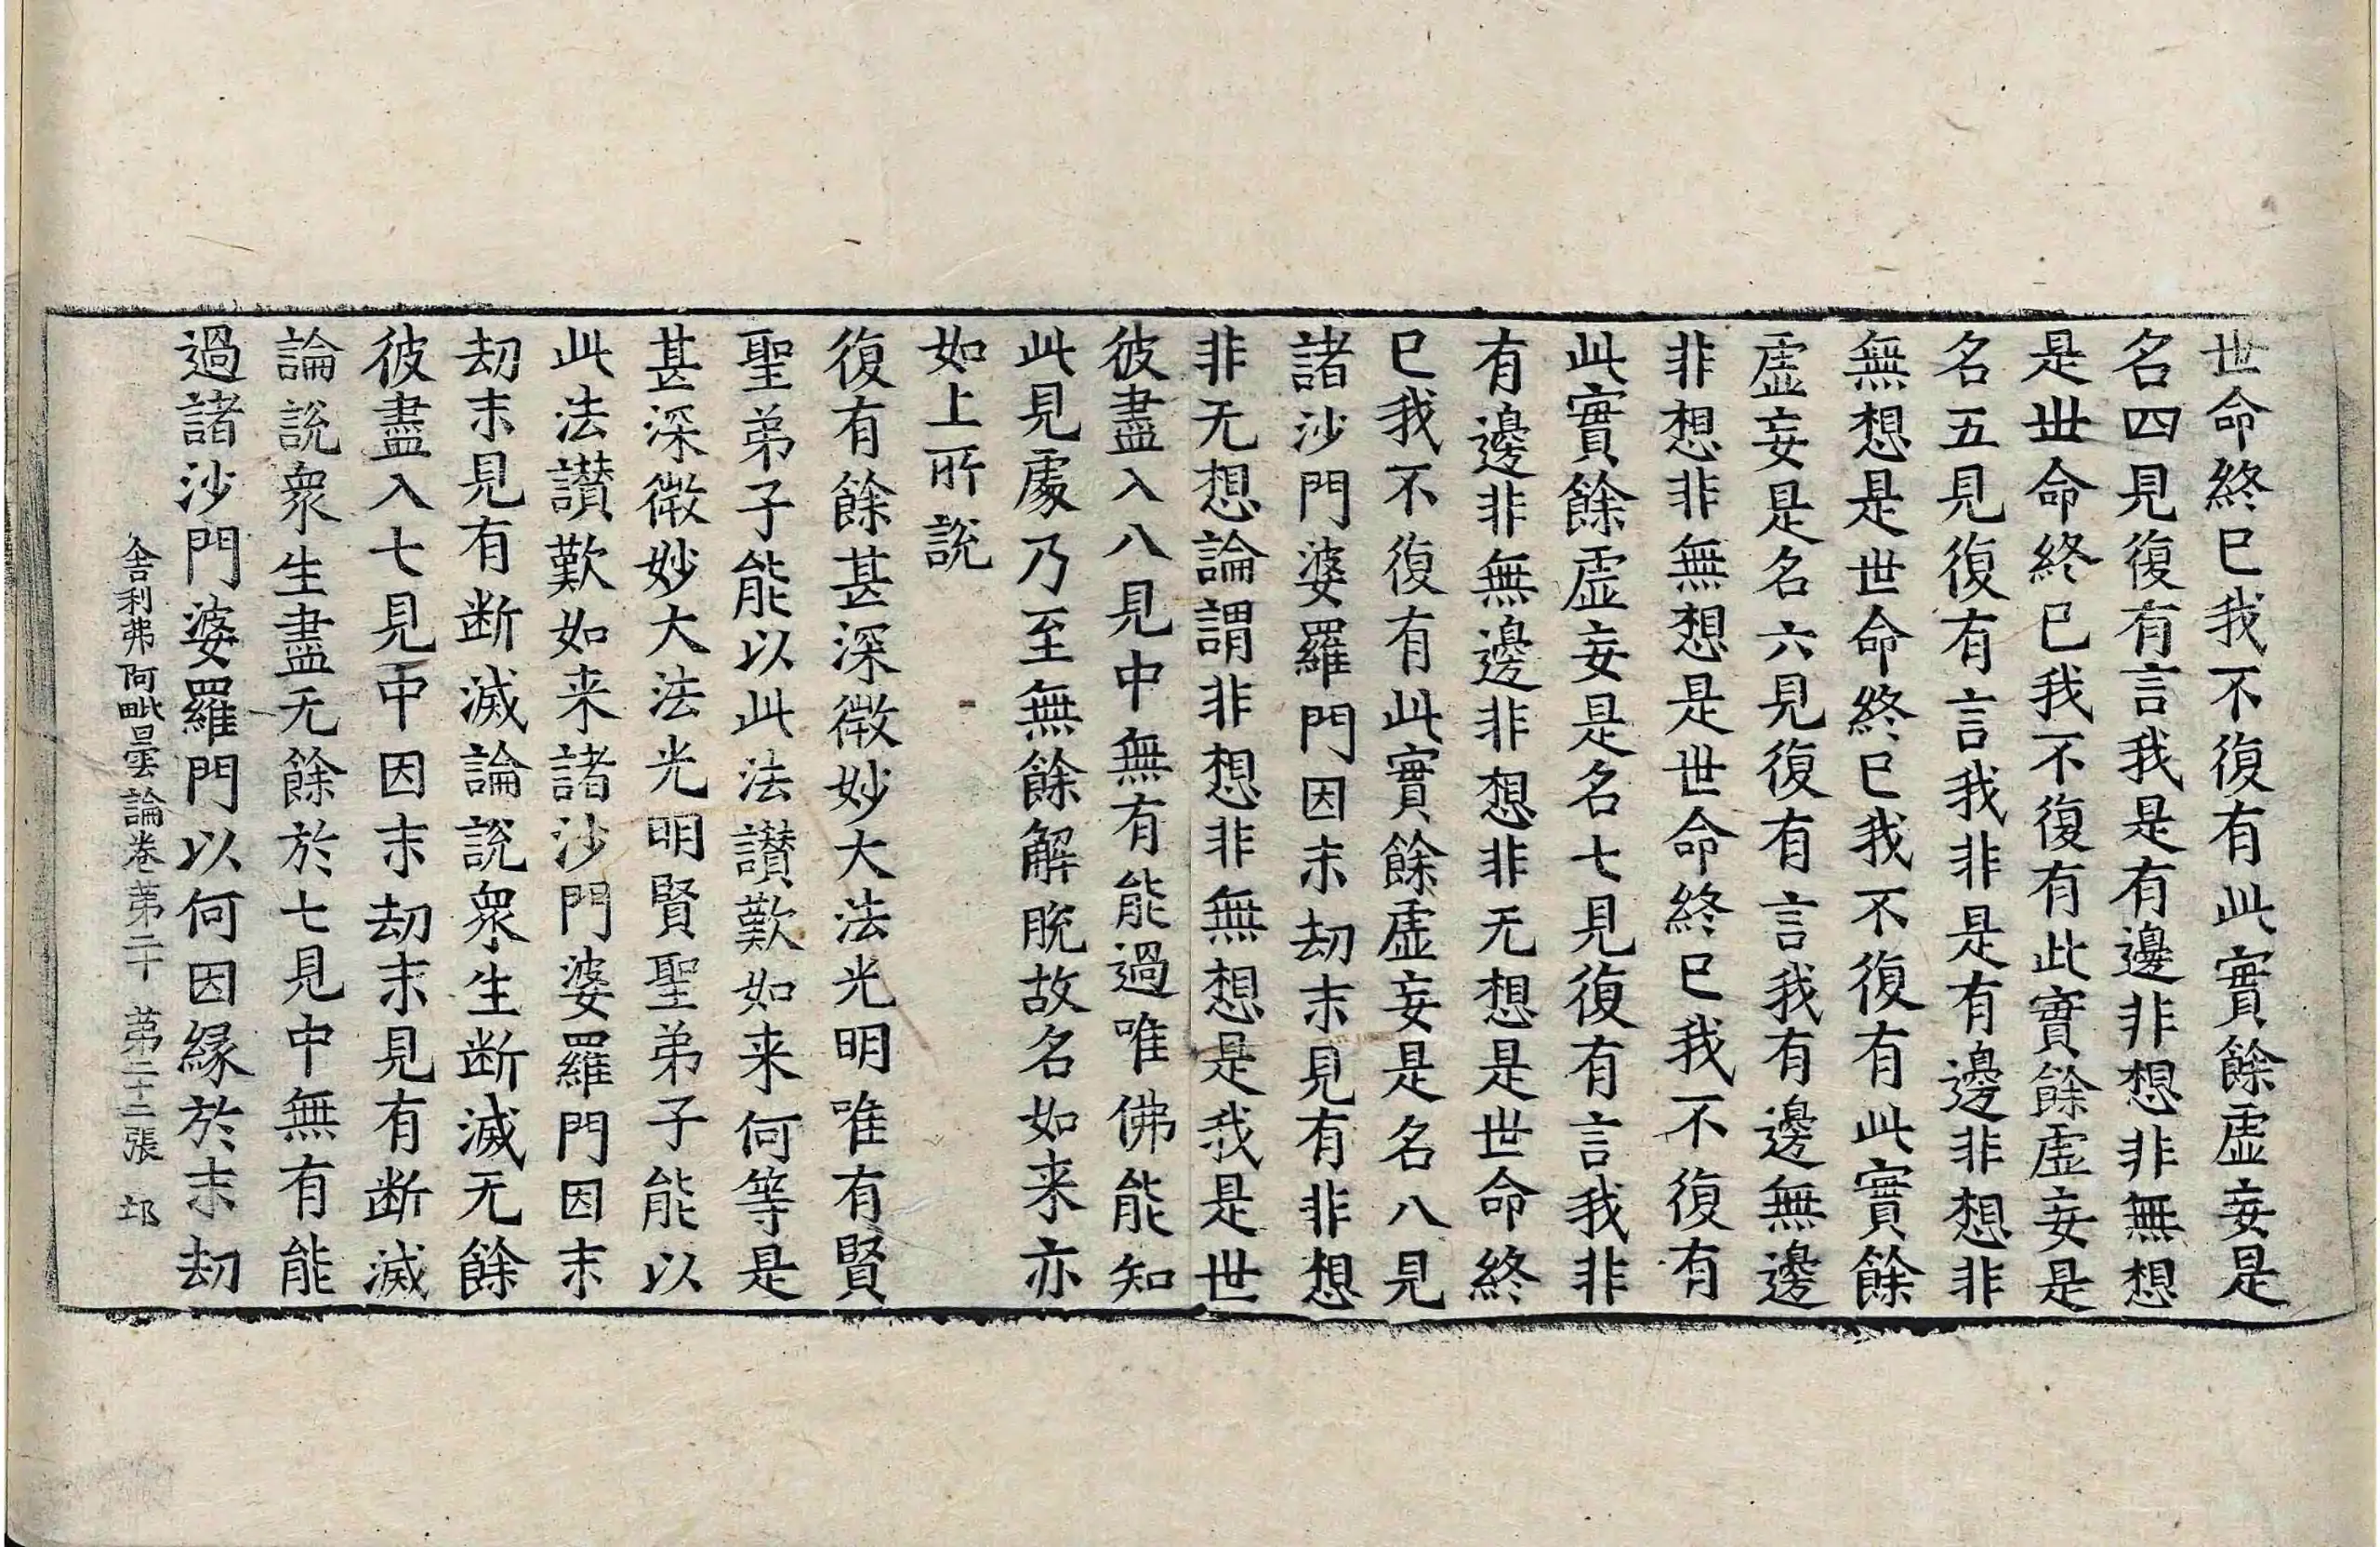 世命終已我不復有此實餘虛妄是
名四見復有言我是有邊非想非無想
是世命終已我不復有此實餘虛妄是
名五見復有言我非是有邊非想非
無想是世命終已我不復有此實餘
虛妄是名六見復有言我有邊無邊
非想非無想是世命終已我不復有
此實餘虛妄是名七見復有言我非
有邊非無邊非想非无想是世命終
已我不復有此實餘虛妄是名八見
諸沙門婆羅門因末劫末見有非想
非无想論謂非想非無想是我是世
彼盡入八見中無有能過唯佛能知
此見處乃至無餘解脫故名如来亦
如上所説
復有餘甚深微妙大法光明唯有賢
聖弟子能以此法讃歎如来何等是
甚深微妙大法光明賢聖弟子能以
此法讃歎如来諸沙門婆羅門因末
劫末見有断滅論說衆生断滅无餘
彼盡入七見中因末劫末見有断滅
論説衆生盡无餘於七見中無有能
過諸沙門婆羅門以何因緣於末劫
舍利弗阿毗曇論卷第二十 第二十二張 邙